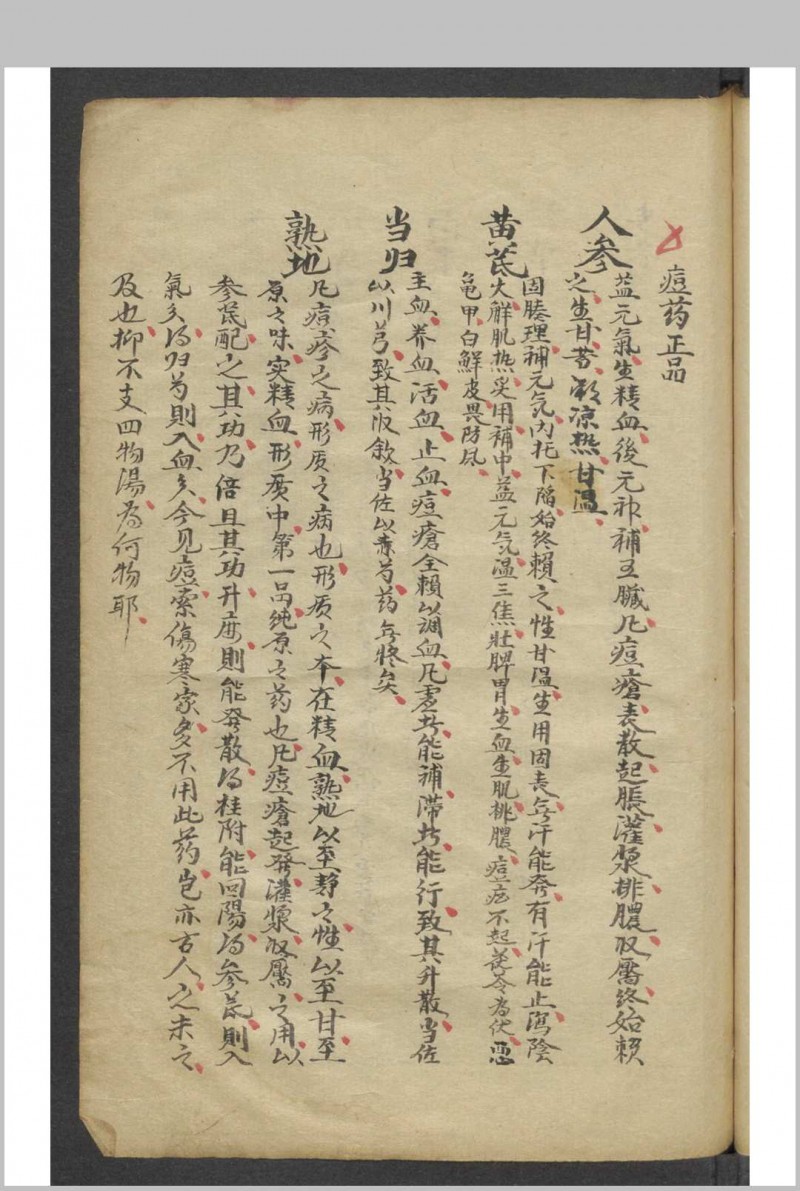 痘药正品
人参
益元氣生精血後元神補五臟凡痘瘡表散起脹灌漿排膿收靨終始賴
之生甘苦凉熟甘温
黄芪
固腠理補元気内托下陷始终賴之性甘温生用固表無汗能発有汗能止瀉陰
火解肌热炙用補中益元気温三焦壮脾胃生血生肌排膿痘疮不起茯苓為伏惡
龟甲白鮮皮畏防风
当归
主血养血活血止血痘瘡全賴以調血凡虚者能補滞者能行致其升散当佐
以川芎致其收斂当佐以赤芍药無疑矣
熟地
凡痘疹之病形质之病也形质之本在精血熟地以至静之性以至甘至
厚之味实精血形质中第一品纯厚之药也凡痘瘡起発灌漿收靨之用以
参芪配之其功乃倍且其功升麻則能発散得桂附能回陽得参芪則入
氣分得归芍則入血分今见痘家傷寒家多不用此药岂亦古人之未之
及也抑不支四物湯為何物耶